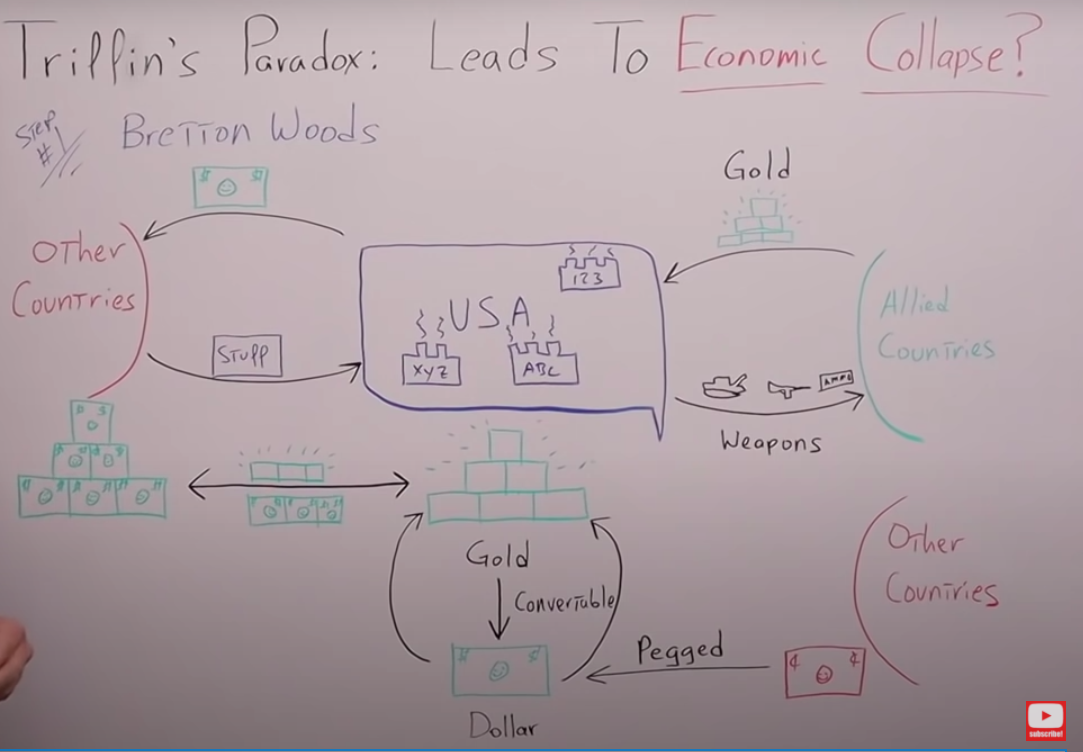 Triffin's Paradox: Leads To Economic Collapse?
Step #1 Bretton Woods
Gold
Other
Countries
123
USA
Allied
Countries
STUFF
XYZ
ABC
AMMO
Weapons
Gold
Convertable
Other
Countries
Pegged
Dollar
subscribe!